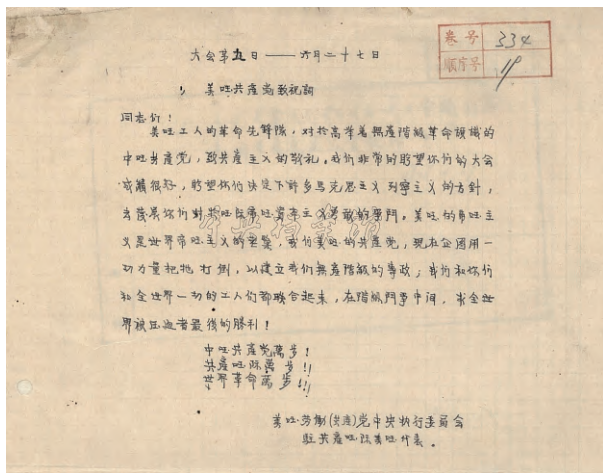 卷号 334
順序号 19
大会第五日——六月二十七日
1, 美囯共產党致祝詞
同志们!
美囯工人的革命先鋒隊,对於高举着無產階級革命旗幟的
中囯共產党,致共產主义的敬礼。我们非常的盼望你们的大会
成績很好,盼望你们决定下許多馬克思主义列寧主义的方針,
你们对 帝囯資本主义勇敢的鬥爭。美囯的帝囯主
义是世界帝囯主义的堡壘,我们美囯的共產党,現在企图用一
切力量把牠打倒,以建立我们無產階級的專政;我们和你们
和全世界一切的工人们都联合起来,在階級鬥爭中间,求全世
界被压迫者最後的勝利!
中囯共產党萬步!
共產囯際萬步!!
世界革命萬步!!!
美囯劳働(共產)党中央执行委員会
駐共產囯際美囯代表。
中央档案馆